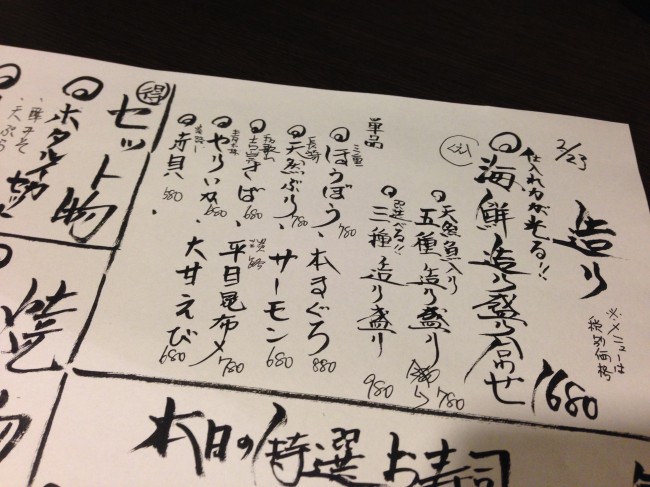 2/23
造り
※メニューは
税別価格
仕入れ力が光る!!
海鮮造り盛り合せ
1680
天然魚入り
五種造り盛り
780
選べる!!
三種造り盛り
980
単品
三重
ほうぼう 780
本まぐろ 880
長崎
天然ぶり 780
サーモン 680
和歌山
さば 680
淡路
平目昆布〆 780
青森
やりいか 580
大甘えび 680
赤貝 580
得
セット物
ホタルイカ
天ぷら
本日の特選お寿司